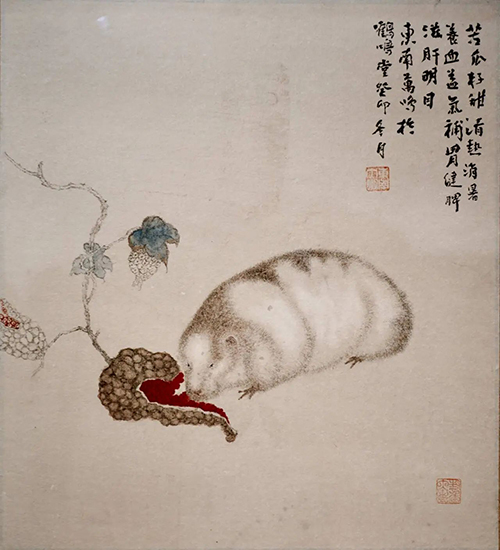 苦瓜籽甜清熱消暑
養血益氣補胃健脾
滋肝明目
東南萬鳴於
鶴鳴堂癸卯冬月